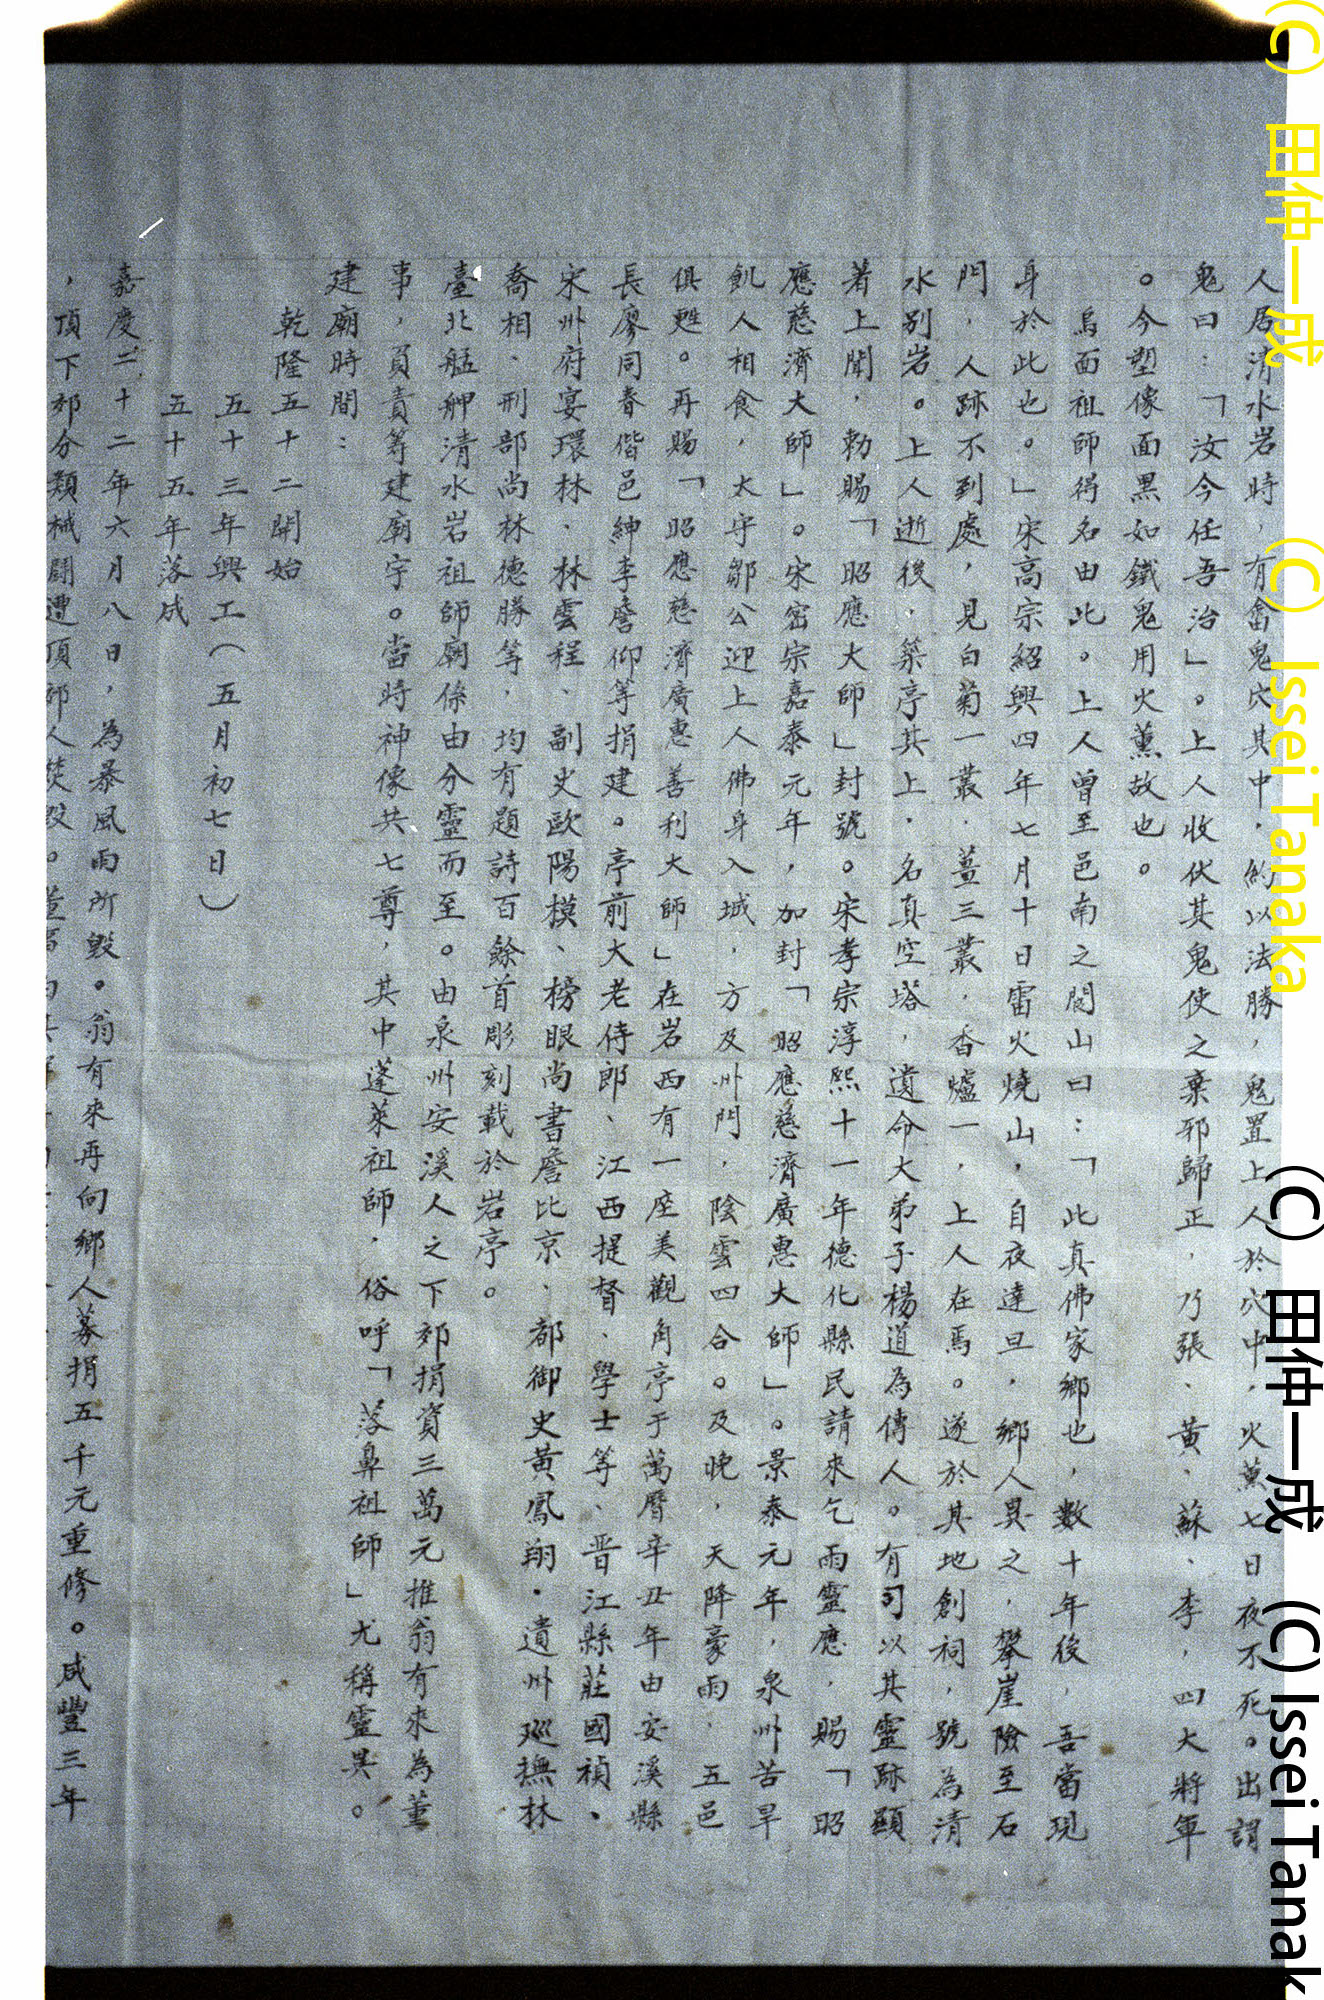 人居清水岩時，有畲鬼穴其中，約以法勝，鬼置上人於穴中，火薰七日夜不死。出謂
鬼曰：「汝今任吾治」。上人收伏其鬼使之棄邪歸正，乃張、黃、蘇、李，四大將軍
。今塑像面黑如鐵鬼用火薰故也。
烏面祖師得名由此。上人曾至邑南之閬山曰：「此真佛家鄉也，數十年後，吾當現
身於此也。」宋高宗紹興四年七月十日雷火燒山，自夜達旦，鄉人異之，攀崖險至石
門，人跡不到處，見白菊一叢，薑三叢，香爐一，上人在焉。遂於其地創祠，號為清
水別岩。上人逝後，築亭其上，名真空塔，遺命大弟子楊道為傳人。有司以其靈跡顯
著上聞，勅賜「昭應大師」封號。宋孝宗淳熙十一年德化縣民請來乞雨靈應，賜「昭
應慈濟大師」。宋密宗嘉泰元年，加封「昭應慈濟廣惠大師」。景泰元年，泉州苦旱
飢人相食，太守鄒公迎上人佛身入城，方及州門，陰雲四合。及晚，天降豪雨，五邑
俱甦。再賜「昭應慈濟廣惠善利大師」在岩西有一座美觀角亭于萬曆辛丑年由安溪縣
長廖同春偕邑紳李詹仰等捐建。亭前大老侍郎、江西提督、學士等、晋江縣莊國禎、
宋州府宴環林、林雲程、副史歐陽模、榜眼尚書詹比京、都御史黃鳳翔．遺州巡撫林
喬相、刑部尚林德勝等，均有題詩百餘首彫刻載於岩亭。
臺北艋舺清水岩祖師廟係由分靈而至。由泉州安溪人之下郊捐資三萬元推翁有來為董
事，負責籌建廟宇。當時神像共七尊，其中蓬萊祖師，俗呼「落鼻祖師」尤稱靈異。
建廟時間：
乾隆五十二開始
五十三年興工（五月初七日）
五十五年落成
嘉慶二十二年六月八日，為暴風雨所毀。翁有來再向鄉人募捐五千元重修。咸豐三年
，頂下郊分類械鬪遭頂郊人焚毀。
(C) 田仲一成 (C) Issei Tanaka
(C) 田仲一成 (C) Issei Tanak